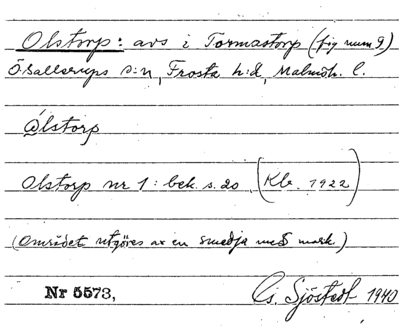 Olstorp: avs i Tormastorp (fig num 9)
Ö Sallerups s:n, Frosta h:d, Malmöh. l.
Ålstorp
Olstorp nr 1: bek. s. 20 (Kb. 1922)
(Området utgöres av en smedja med mark)
Nr 5573,
G. Sjöstedt 1940